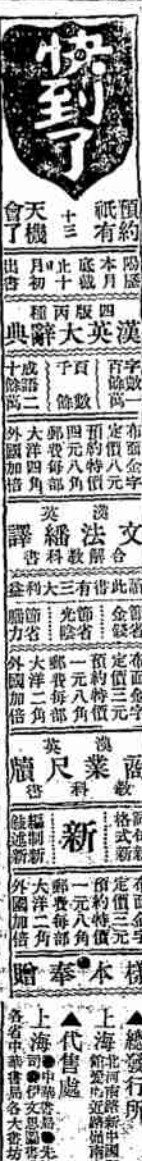 快到了
預約祇有
十三
天機會了
陽曆本月底截止
十月初出書
四版丙種
漢英大辭典
字數一百餘萬
頁數千餘
成語二十餘萬
布面金字
定價八元
預約特價
四元八角
郵費每部
大洋四角
外國加倍
漢英
文法繙譯
合解教科書
讀此書有三大利益
節省金錢
節省光陰
節省腦力
布面金字
定價三元
預約特價
一元八角
郵費每部
大洋二角
外國加倍
漢英
商業尺牘
教科書
新
格式新
編制新
敍述新
布面金字
定價三元
預約特價
一元八角
郵費每部
大洋二角
外國加倍
樣本奉贈
▲總發行所
上海北河南路新中國
館愛而近路嶺南
▲代售處
上海●中華書局●先
司●伊文思圖書
各省中華書局各大書坊